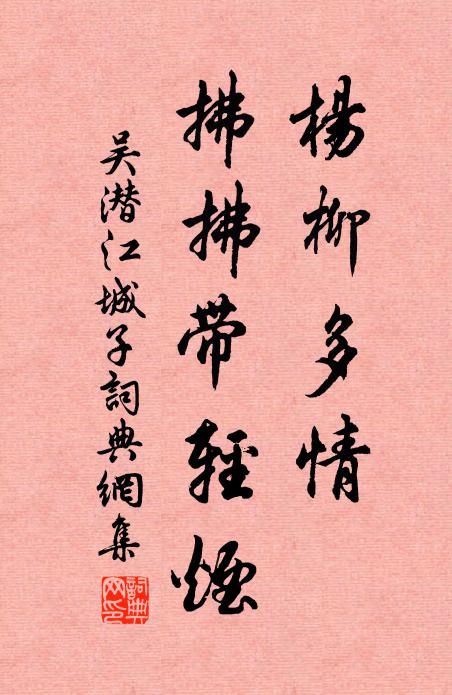 楊柳多情
拂拂帶輕煙
吴潜江城子詞典網集
詞典網印